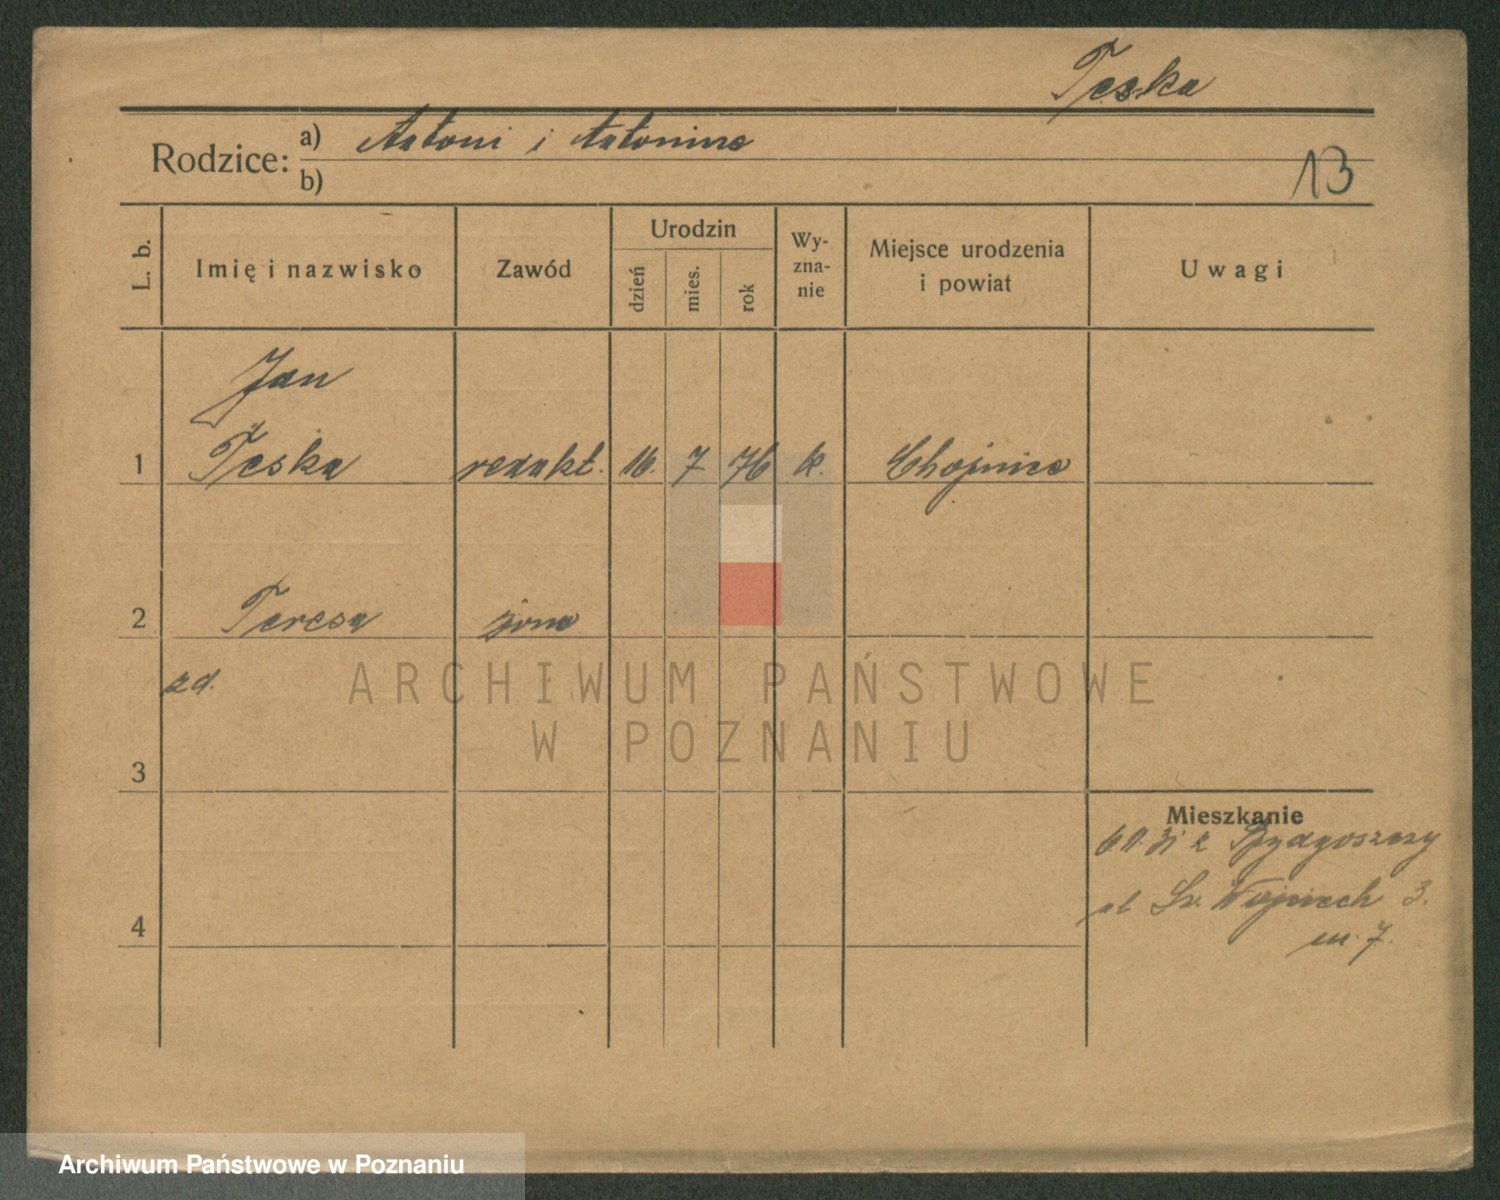 Teska
Rodzice: a) Antoni i Antonina
b)
13
L. b.
Imię i nazwisko
Zawód
Urodzin
dzień
mies.
rok
Wy-
zna-
nie
Miejsce urodzenia
i powiat
Uwagi
Jan
1 Teska redakt. 16. 7 76 k. Chojnice
2 Teresa żona
zd.
ARCHIWUM PAŃSTWOWE
W POZNANIU
3
Mieszkanie
z Bydgoszczy
ul. Św. Wojciech 3.
m. 7.
4
Archiwum Państwowe w Poznaniu